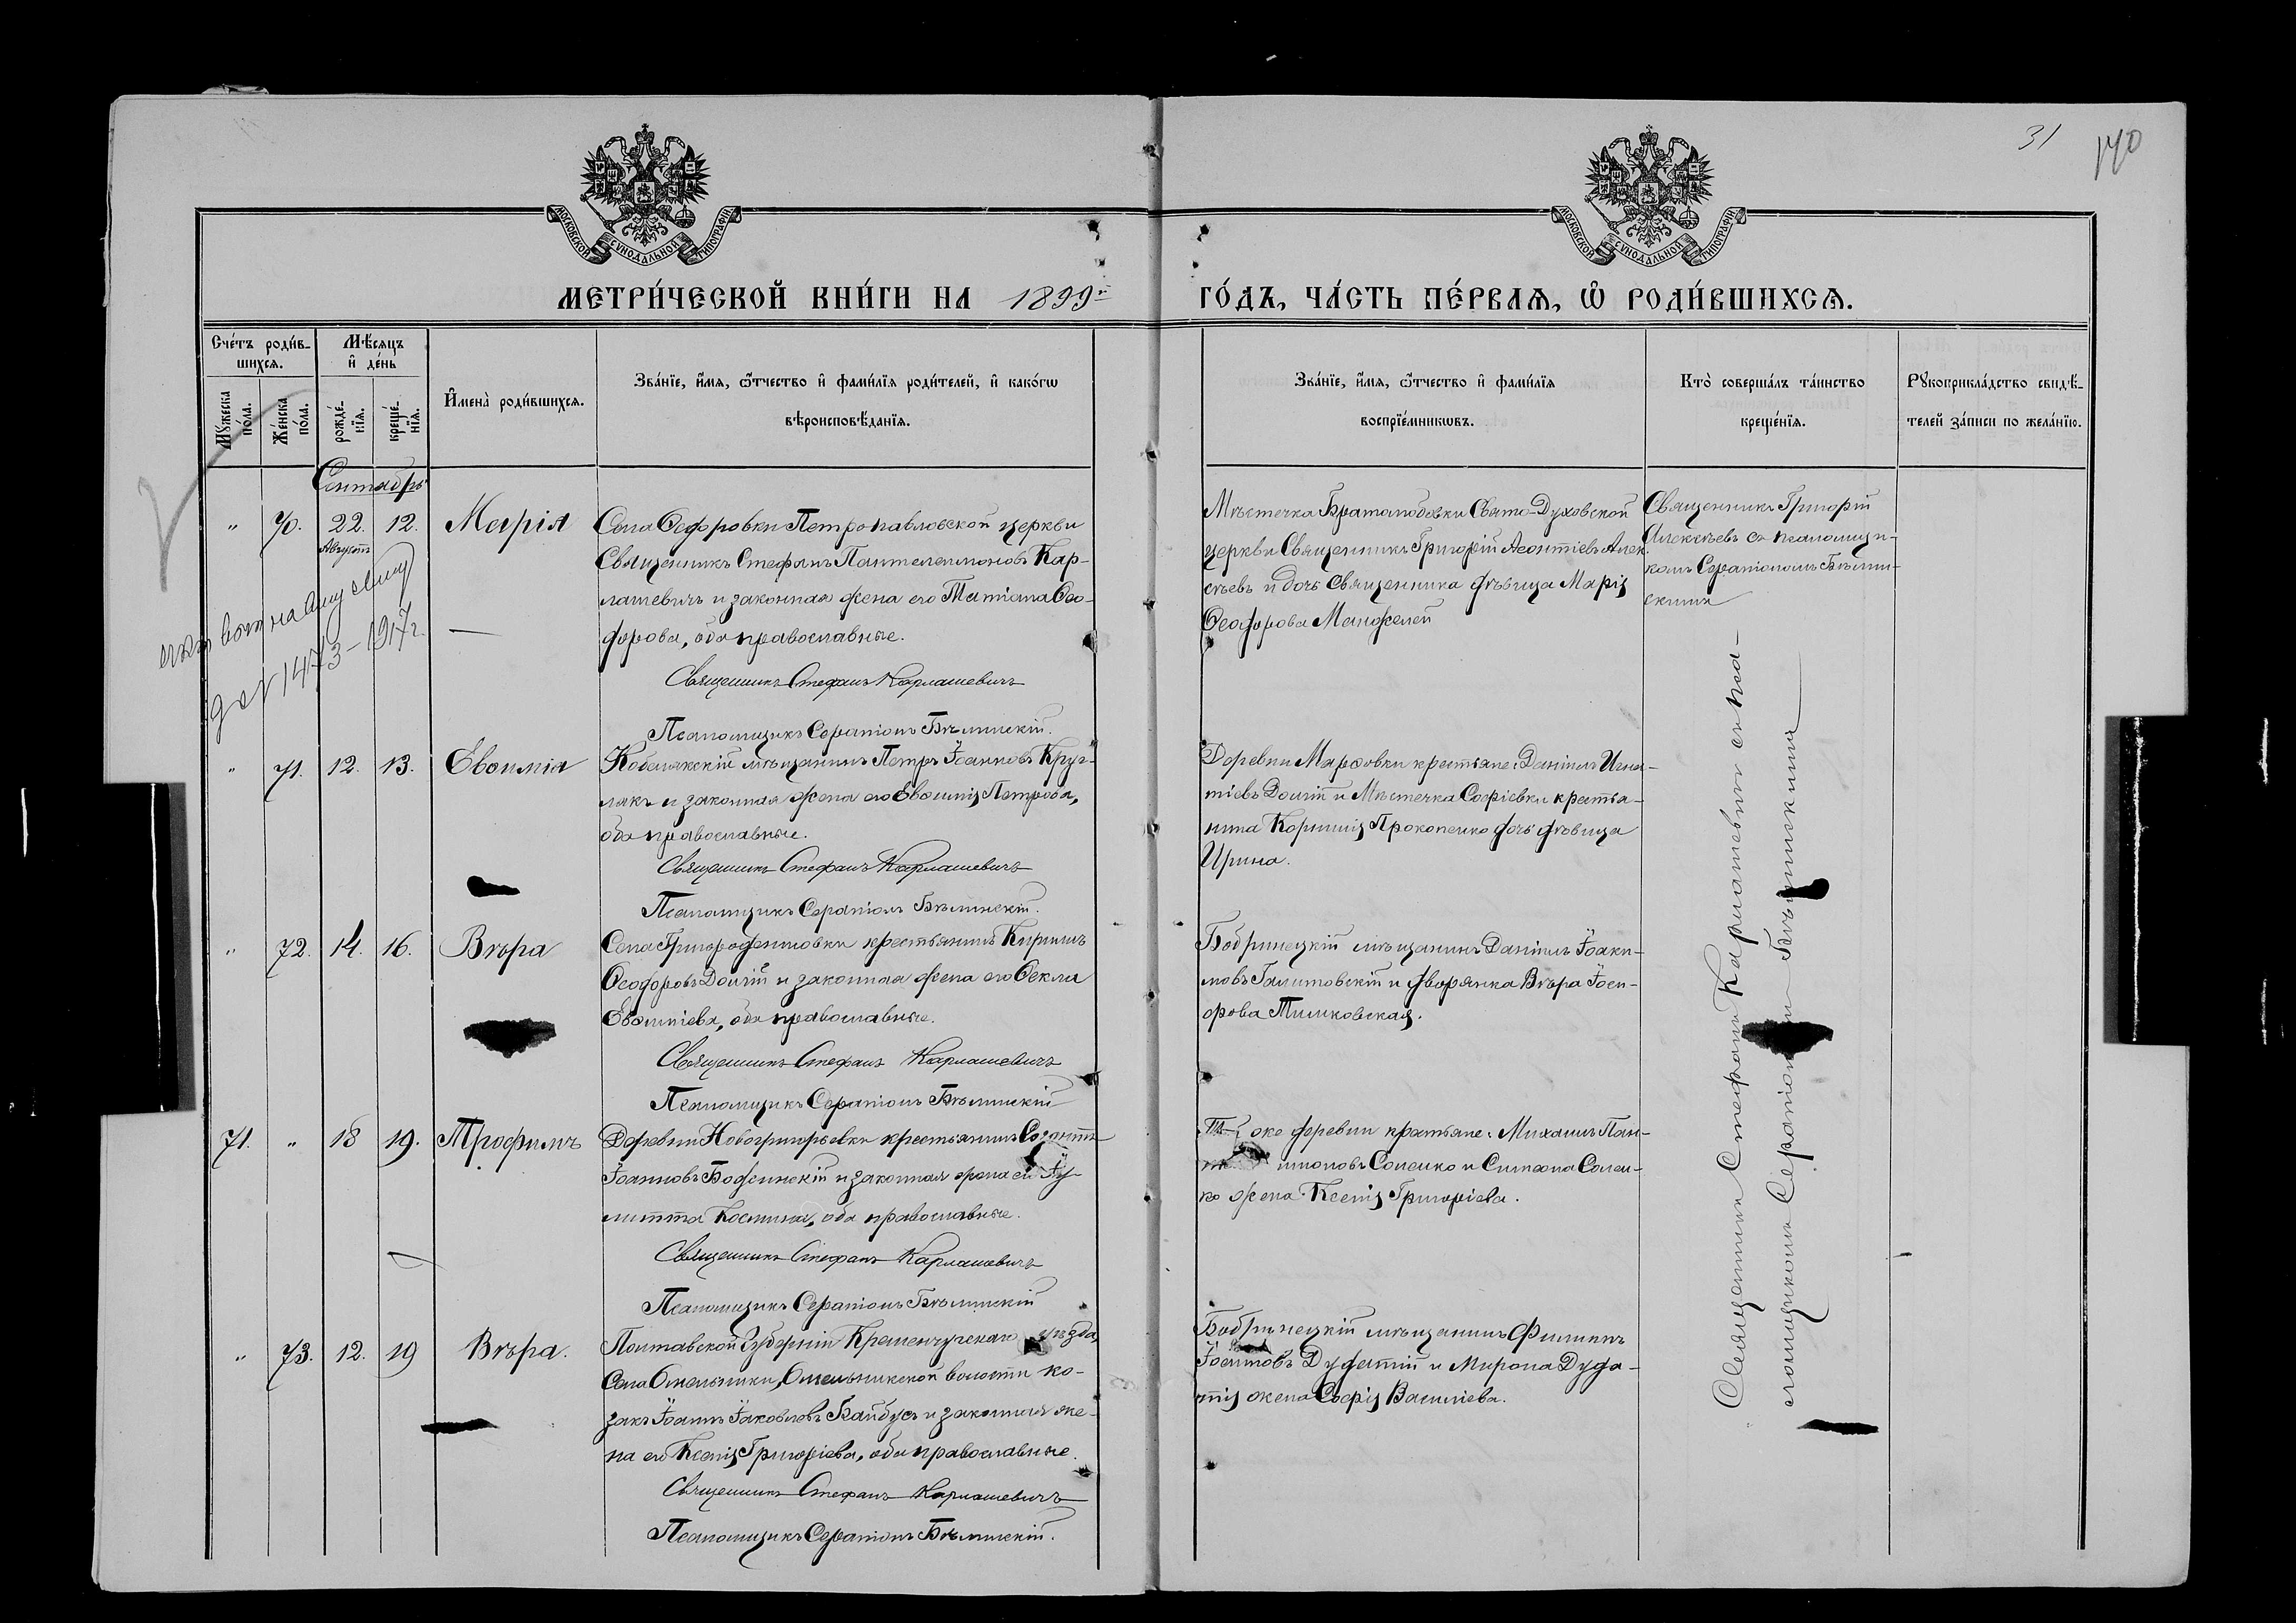 31 140
МОСКОВСКОЙ СѴНОДАЛЬНОЙ ТИПОГРАФІИ
МОСКОВСКОЙ СѴНОДАЛЬНОЙ ТИПОГРАФІИ
МЕТРИ́ЧЕСКОЙ КНИ́ГИ НА 1899й ГО́ДЪ, ЧА́СТЬ ПЕ́РВАѦ, Ѡ РОДИ́ВШИХСѦ.
Сче́тъ роди́в-
шихся.
Мѣ́сяцъ
и де́нь
Мꙋ́жеска
по́ла.
Же́нска
по́ла.
рожде́-
нїя.
креще́-
нїя.
И҆мена̀ роди́вшихся.
Зва́нїе, и҆́мя, ѻ҆́тчество и҆ фами́лїя роди́телей, и҆ како́гѡ
вѣроисповѣ́данїя.
Зва́нїе, и҆́мя, ѻ҆́тчество и҆ фами́лїя
воспрїе́мникѡвъ.
Кто̀ соверша́лъ та́инство
креще́нїя.
Рꙋкоприкла́дство свидѣ́-
телей за́писи по жела́нїю.
Сентябрь
" 70. 22. 12. Марія
Августъ
Села Ѳедоровки Петропавловской церкви
Священникъ Стефанъ Пантелеимоновъ Кар-
лашевичъ и законная жена его Татіана Ѳео-
дорова, оба православные.
Священникъ Стефанъ Карлашевичъ
Псаломщикъ Серапіонъ Бѣлинскій.
Мѣстечка Братолюбовки Свято-Духовской
церкви Священникъ Григорій Леонтіевъ Алек-
сѣевъ и дочь Священника дѣвица Марія
Ѳеодорова Манжелей
Священникъ Григорій
Алексѣевъ съ псаломщи-
комъ Серапіономъ Бѣлин-
скимъ
1473-1917г.
" 71. 12. 13. Евѳимія
Кобелякскій мѣщанинъ Петръ Іоанновъ Круг-
лякъ и законная жена его Евѳимія Петрова,
оба православные.
Священникъ Стефанъ Карлашевичъ
Псаломщикъ Серапіонъ Бѣлинскій.
Деревни Марѳовки крестьяне: Даніилъ Игна-
тіевъ Долгій и Мѣстечка Софіевки крестья-
нина Корнилія Прокопенко дочь дѣвица
Ирина.
Священникъ Стефанъ Карлашевичъ съ пса-
ломщикомъ Серапіономъ Бѣлинскимъ
" 72. 14. 16. Вѣра
Села Григороденисовки крестьянинъ Кириллъ
Ѳеодоровъ Долгій и законная жена его Ѳекла
Евѳиміева, оба православные.
Священникъ Стефанъ Карлашевичъ
Псаломщикъ Серапіонъ Бѣлинскій
Бобринецкій мѣщанинъ Даніилъ Іоаки-
мовъ Галитовскій и дворянка Вѣра Іоси-
фова Тимковская.
71. " 18 19. Трофимъ
Деревни Новогригорьевки крестьянинъ
Іоанновъ Боженскій и законная жена его Іу-
литта Косьмина, оба православные.
Священникъ Стефанъ Карлашевичъ
Псаломщикъ Серапіонъ Бѣлинскій
же деревни крестьяне: Михаилъ Пан-
имоновъ Соленко и Симеона Солен-
ко жена Ксенія Григоріева.
" 73. 12. 19 Вѣра.
Полтавской губерніи Кременчугскаго уѣзда,
Села Омельники, Омельникской волости ко-
закъ Іоаннъ Іаковлевъ Байбузъ и законная же-
на его Ксенія Григоріева, оба православные.
Священникъ Стефанъ Карлашевичъ
Псаломщикъ Серапіонъ Бѣлинскій.
Бобринецкій мѣщанинъ Филиппъ
Іосифовъ Дудатій и Мирона Дуда-
тія жена Софія Василіева.